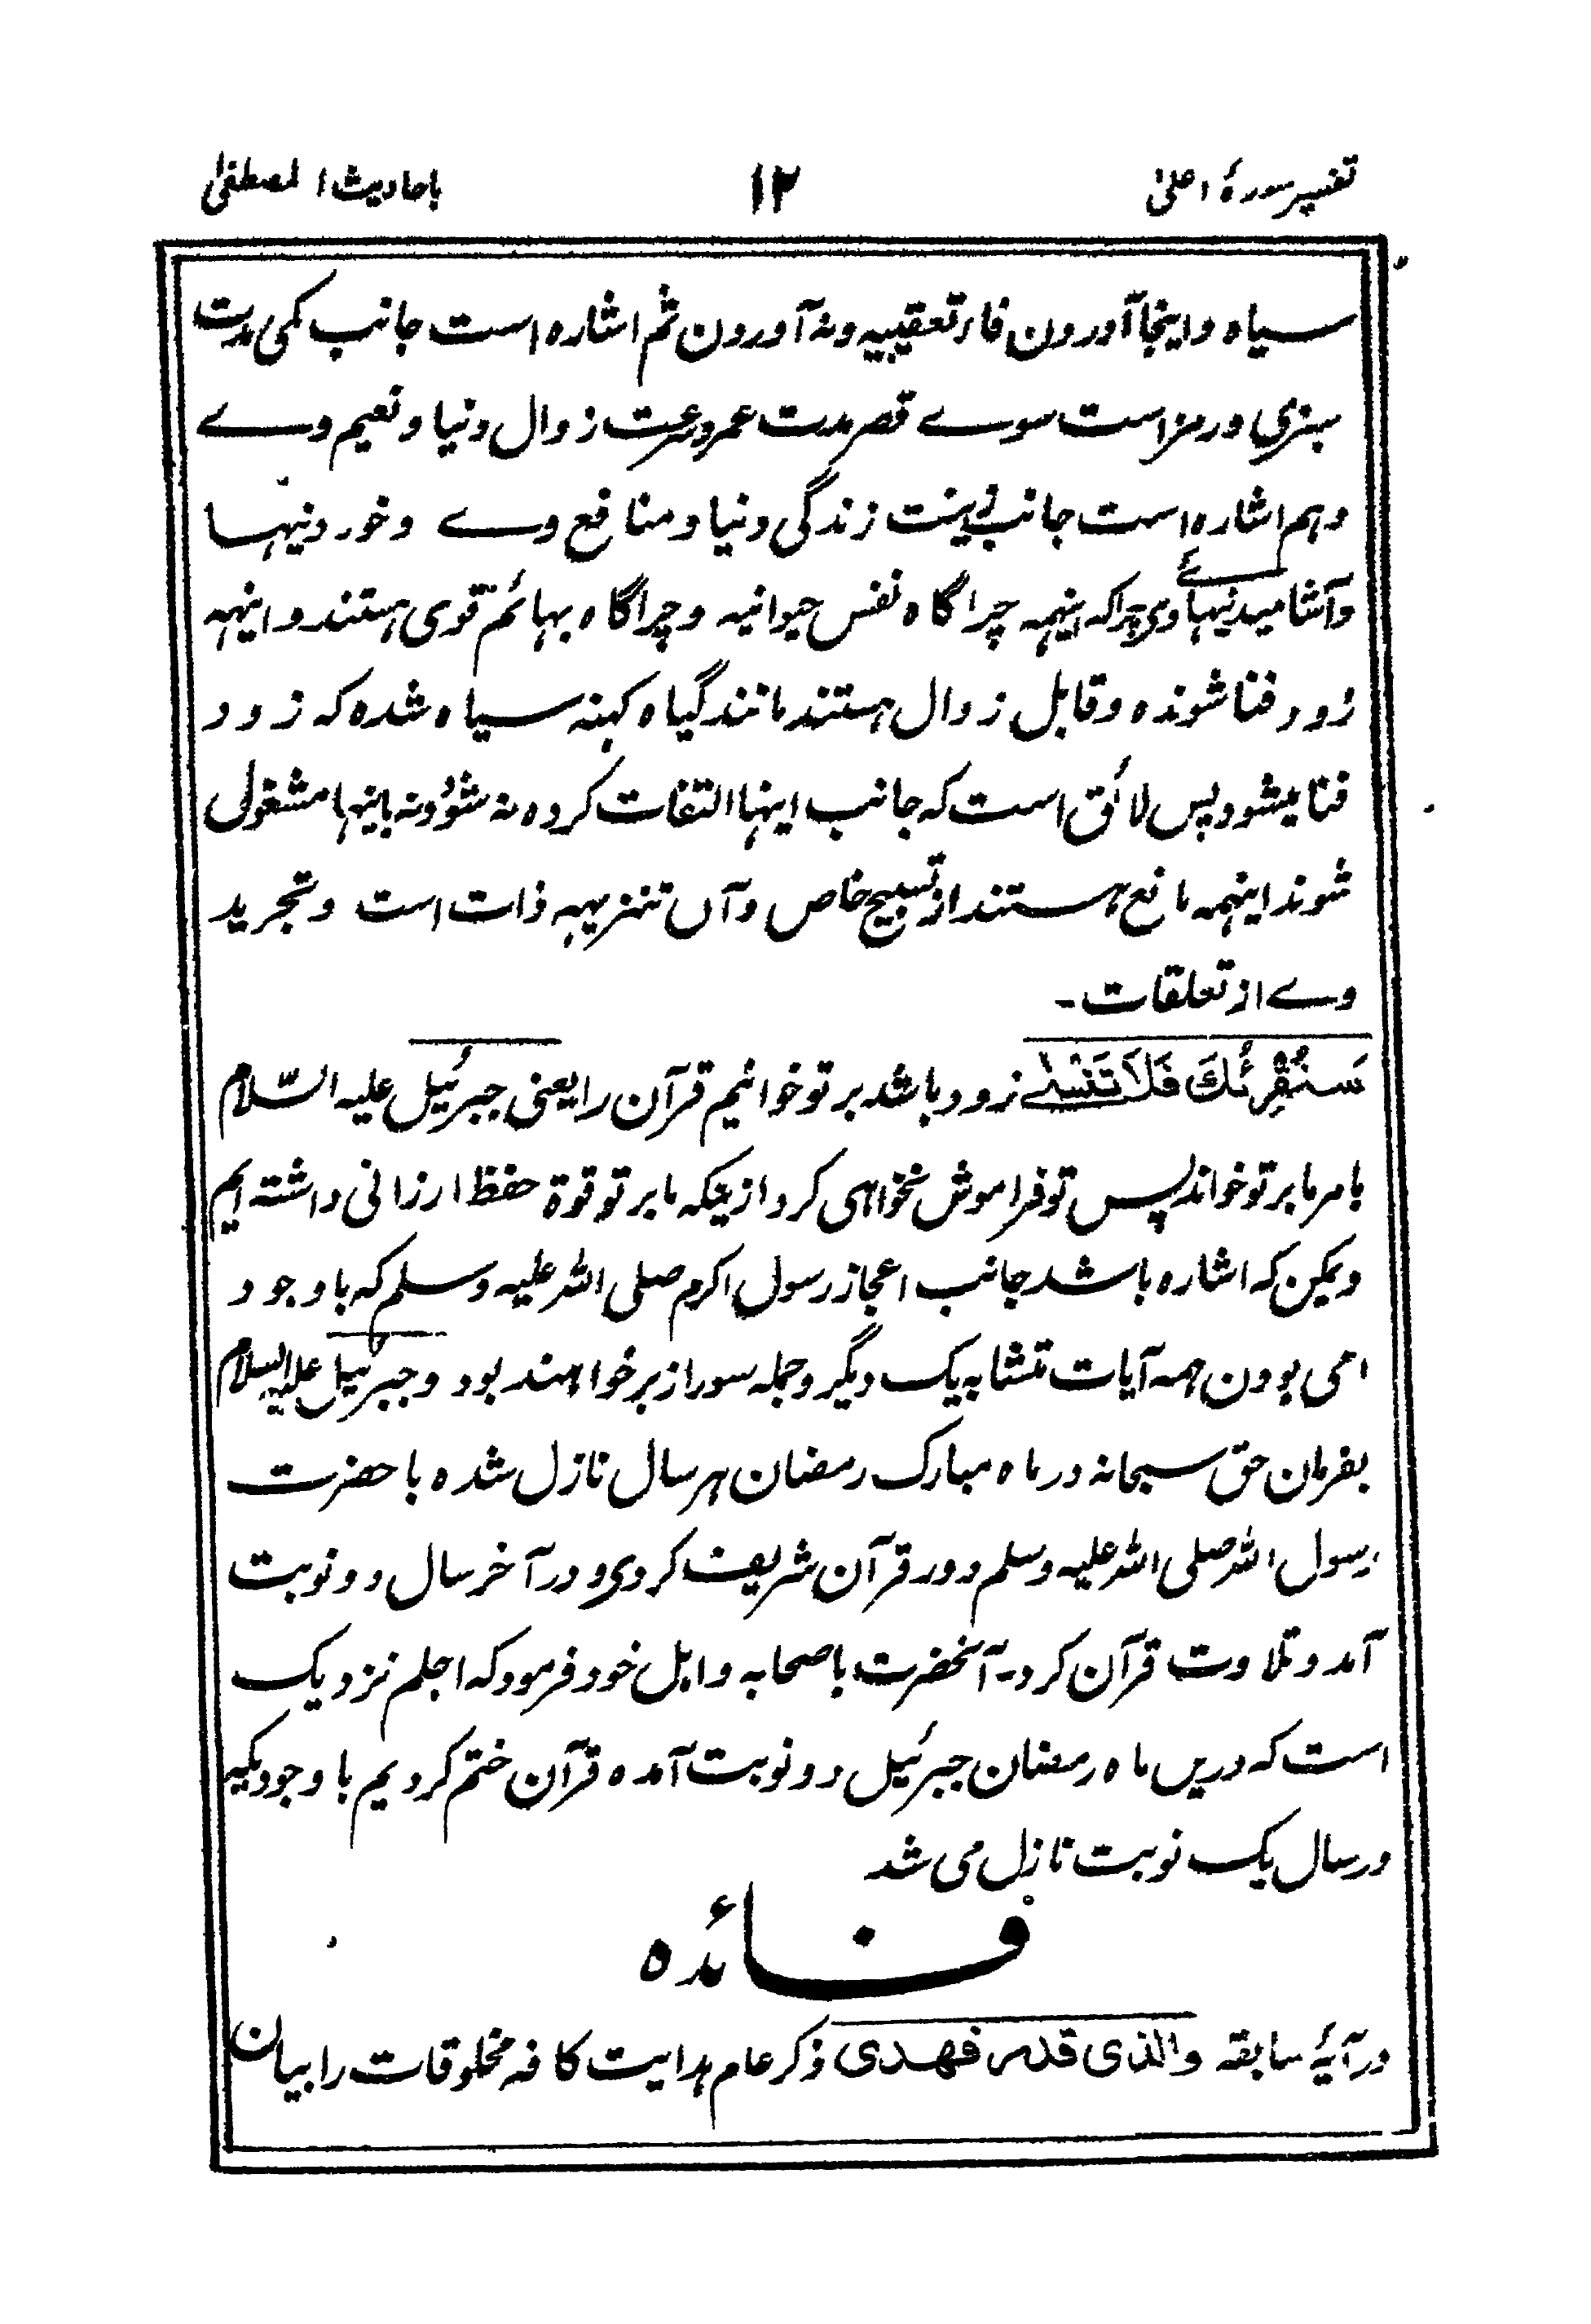 تفسیر سورۂ اعلیٰ ۱۲ باحادیث المصطفیٰ
سیاہ و اینجا آوردن فاء تعقیبیہ و نہ آوردن ثم اشارہ است جانب کمی مدت
سبزی و رمز است سوے قصر مدت عمر و سرعت زوال دنیا و نعیم وے
و ہم اشارہ است جانب زینت زندگی دنیا و منافع وے و خوردنیہا
و آشامیدنیہائے وی چراکہ اینہمہ چراگاہ نفس حیوانیہ و چراگاہ بہائم قوی ہستند و اینہمہ
زود فنا شوندہ و قابل زوال ہستند مانند گیاہ کہنہ سیاہ شدہ کہ زود
فنا میشود پس لائق است کہ جانب اینہا التفات کردہ نہ شود و نہ باینہا مشغول
شوند اینہمہ مانع ہستند از تسبیح خاص و آں تنزیہہ ذات است و تجرید
وے از تعلقات۔
سَنُقْرِئُكَ فَلَا تَنْسٰى زود باشد بر تو خوانیم قرآن را یعنی جبرئیل علیہ السّلام
بامر ما بر تو خواند پس تو فراموش نخواہی کرد ازینکہ ما بر تو قوۃ حفظ ارزانی داشتہ ایم
و یمکن کہ اشارہ باشد جانب اعجاز رسول اکرم صلی اللہ علیہ وسلم کہ باوجود
امی بودن ہمہ آیات متشابہ یک دیگر و جملہ سور از بر خواہند بود و جبرئیل علیہ السلام
بفرمان حق سبحانہ در ماہ مبارک رمضان ہر سال نازل شدہ با حضرت
رسول اللہ صلی اللہ علیہ وسلم دور قرآن شریف کردی و در آخر سال دو نوبت
آمد و تلاوت قرآن کرد۔ آنحضرت باصحابہ و اہل خود فرمود کہ اجلم نزدیک
است کہ دریں ماہ رمضان جبرئیل دو نوبت آمدہ قرآن ختم کردیم باوجودیکہ
در سال یک نوبت نازل می شد
فائدہ
در آیۂ سابقہ والذی قدر فهدی ذکر عام ہدایت کافہ مخلوقات را بیان